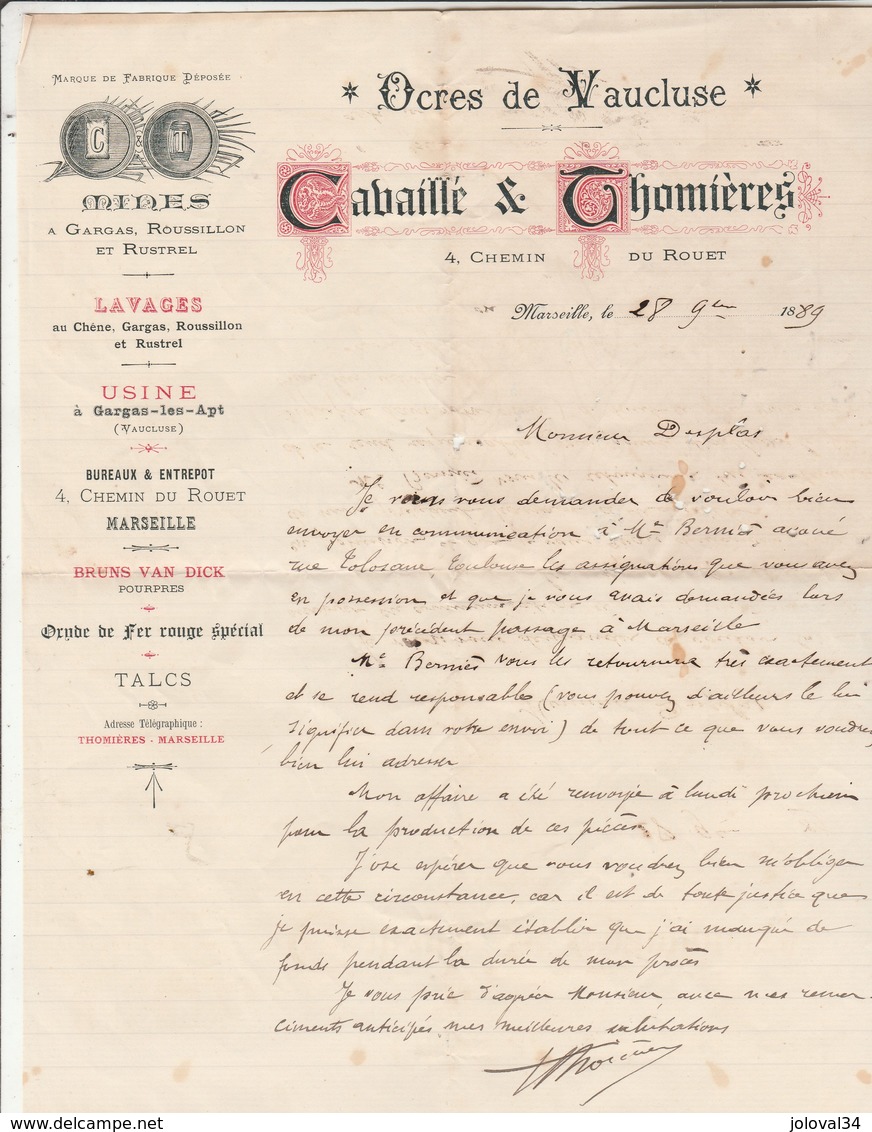 Marque de Fabrique Déposée
C & T
MINES
a Gargas, Roussillon
et Rustrel
LAVAGES
au Chêne, Gargas, Roussillon
et Rustrel
USINE
à Gargas-les-Apt
(Vaucluse)
BUREAUX & ENTREPOT
4, Chemin du Rouet
MARSEILLE
BRUNS VAN DICK
POURPRES
Oxyde de Fer rouge spécial
TALCS
Adresse Télégraphique :
THOMIÈRES - MARSEILLE
* Ocres de Vaucluse *
Cavaillé & Thomières
4, Chemin du Rouet
Marseille, le 28 9bre 1889
Monsieur Desplas
Je viens vous demander de vouloir bien
envoyer en communication à Me Berniès avoué
rue Tolosane Toulouse les assignations que vous avez
en possession et que je vous avais demandées lors
de mon précédent passage à Marseille
Me Berniès vous les retournera très exactement
et se rend responsable (vous pouvez d'ailleurs le lui
signifier dans votre envoi) de tout ce que vous voudrez
bien lui adresser
Mon affaire a été renvoyée à lundi prochain
pour la production de ces pièces.
J'ose espérer que vous voudrez bien m'obliger
en cette circonstance, car il est de toute justice que
je puisse exactement établir que j'ai manqué de
fonds pendant la durée de mon procès
Je vous prie d'agréer Monsieur avec mes remer-
ciments anticipés mes meilleures salutations
joloval34